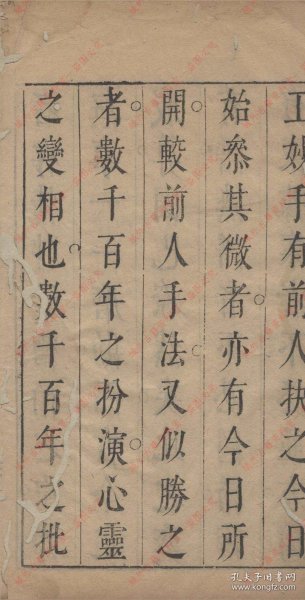 工妙手有前人抉之今日
始叅其微者亦有今日所
開較前人手法又似勝之
者數千百年之扮演心靈
之變相也數千百年之批
孔夫子旧书网
www.kongfz.com